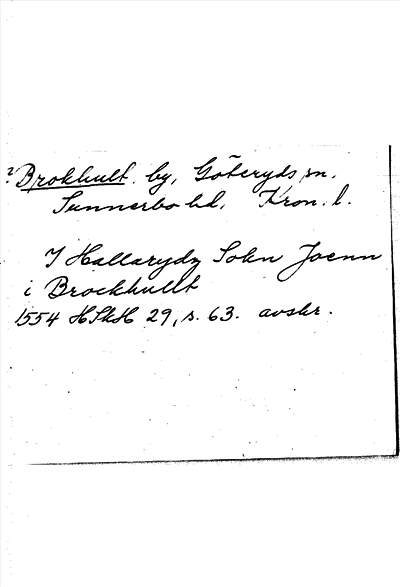 ? Brokhult. by, Göteryds sn.
Sunnerbo hd. Kron. l.
I Hallarydz Sokn Joenn
i Brockhullt
1554 HSkH 29, s. 63. avskr.